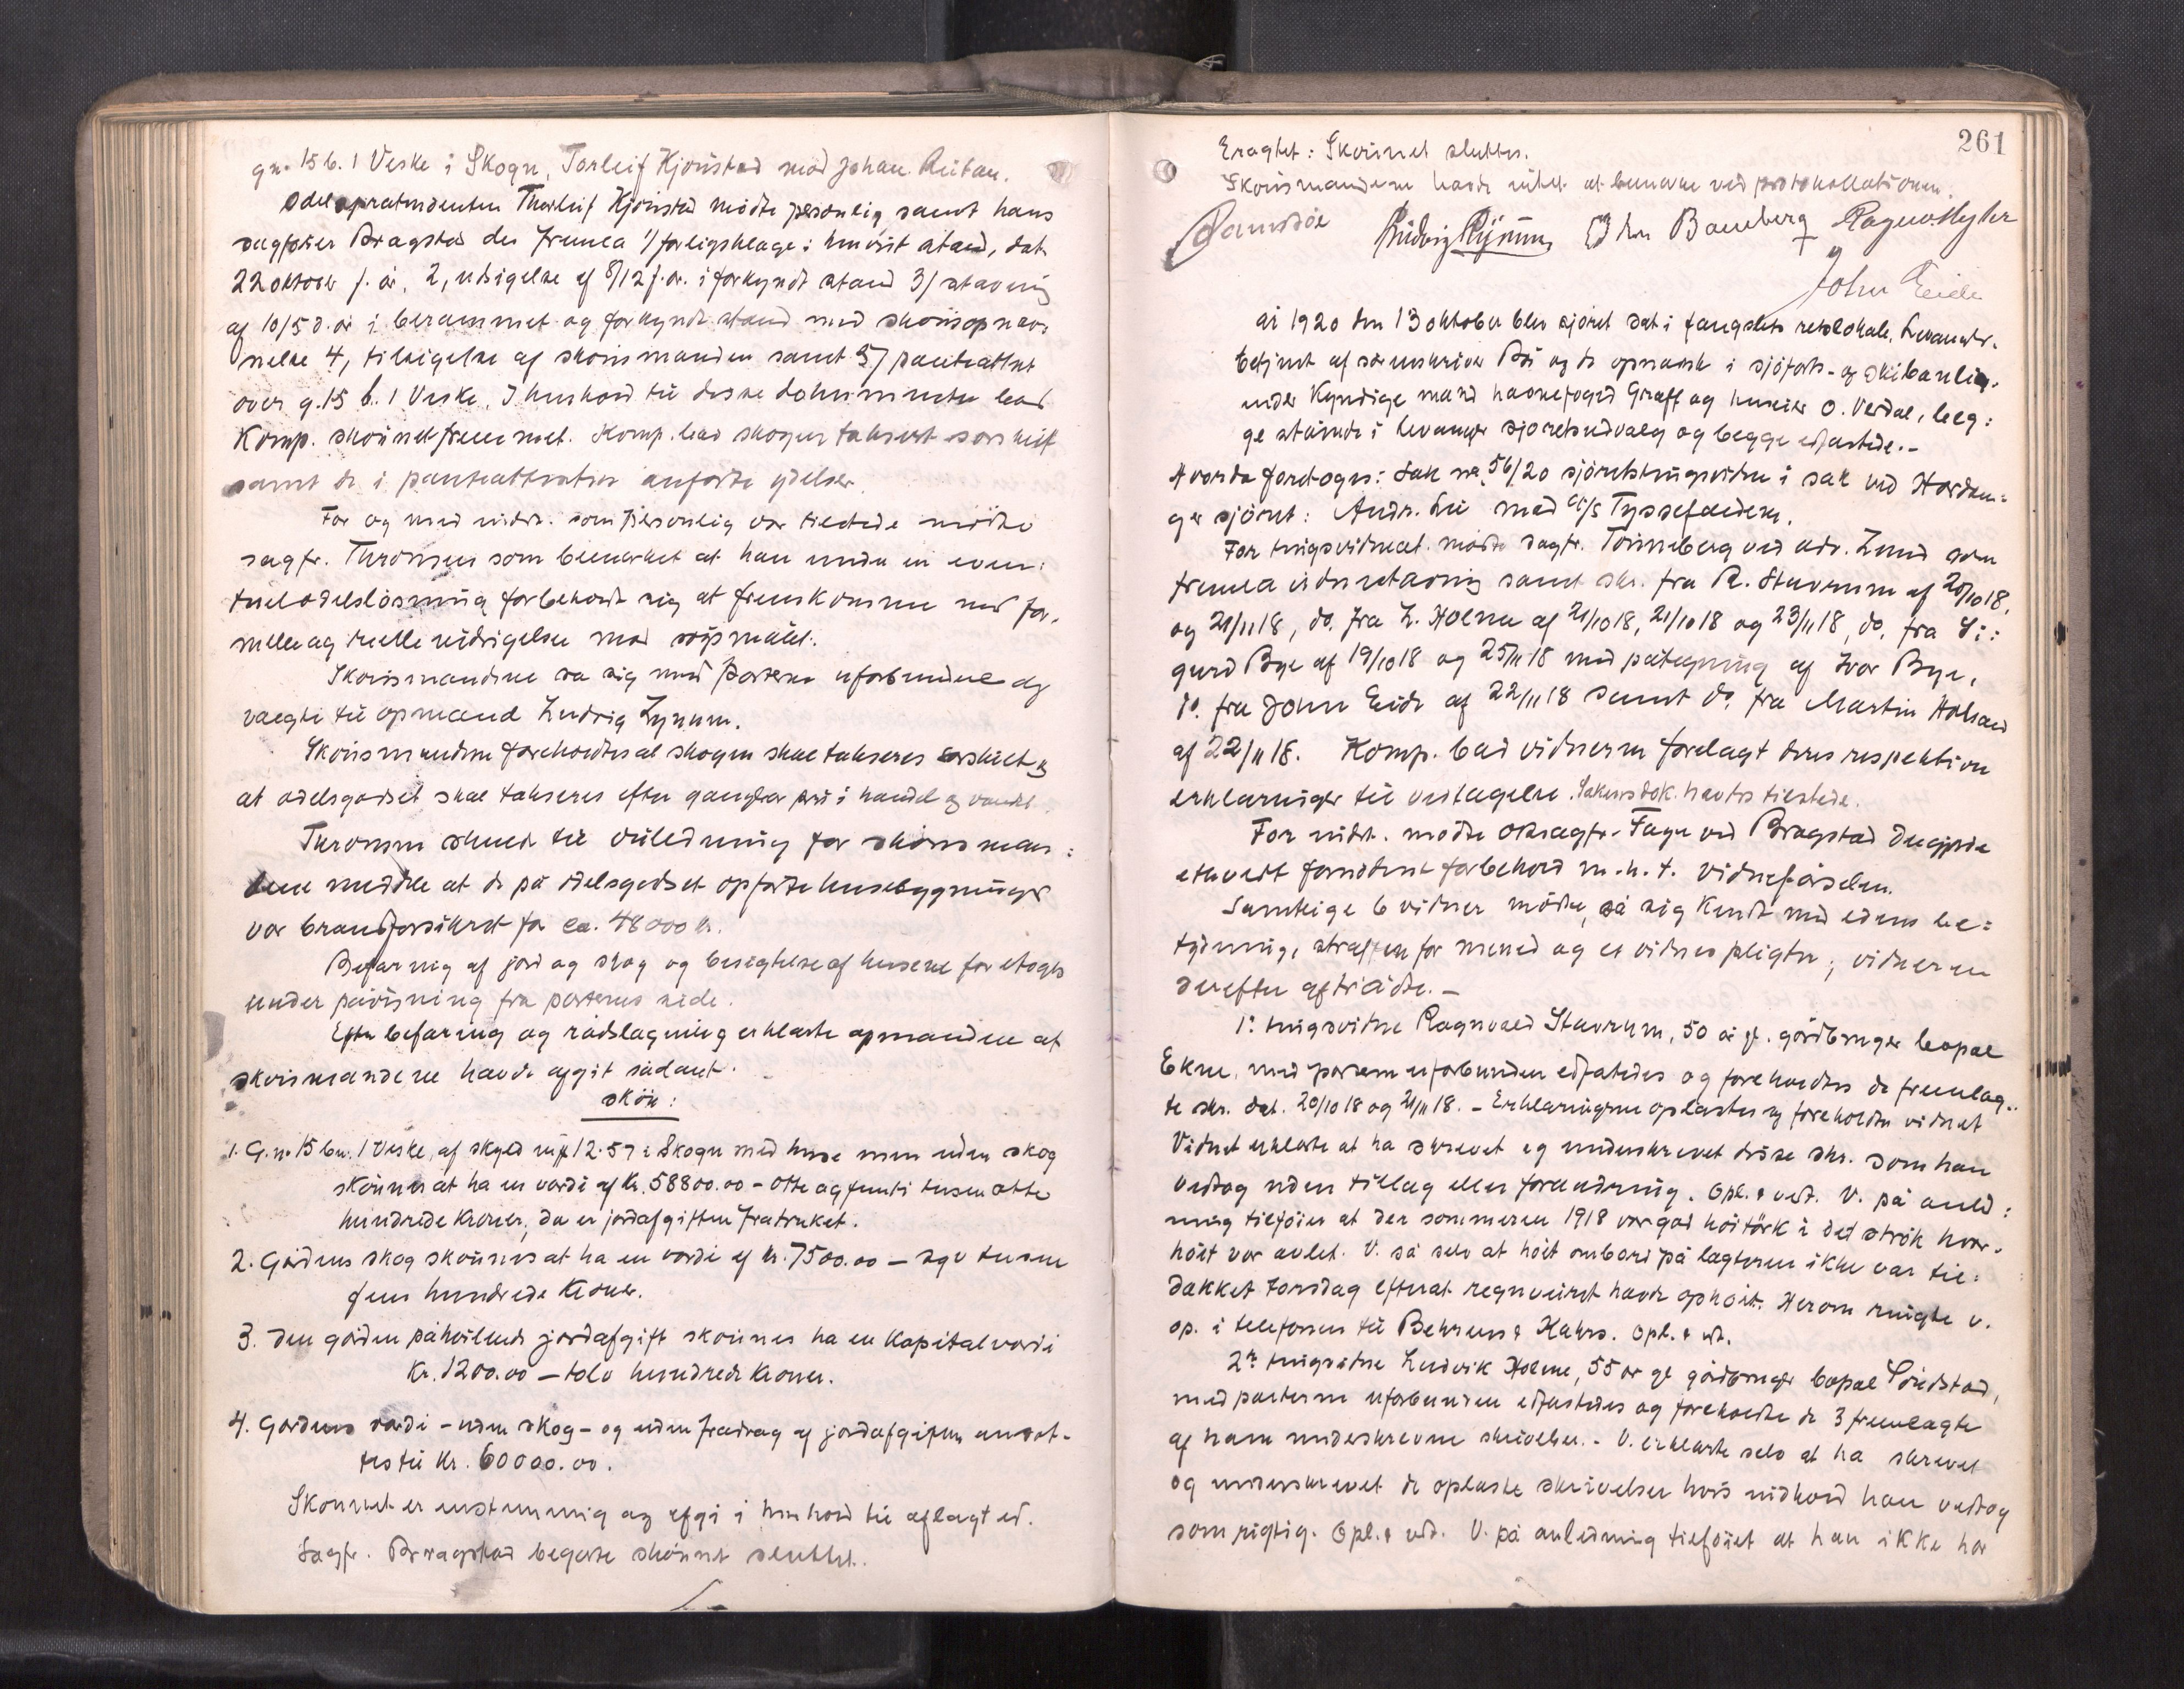 gn. 15 b. 1 Veske i Skogn, Torleif Hjönstad mod Johan Rütan.
Odelsprætendenten Thorleif Hjönstad mödte personlig samt hans
sagförer Bragstad der fremla 1/ forligsklage i henvist stand, dat.
22 oktober f. år, 2, utsigelse af 8/12 f. år. i forkyndt stand 3/ stævning
af 10/5 d. år i berammet og forkyndt stand med skönsopnæv-
nelse 4, tilsigelse af skönsmænden samt 5/ pantattest
over g. 15 b. 1 Veske. I henhold til disse dokumenter bad
Komp. skönnet fremmet. Komp. bad skogen taksert særskilt
samt de i pantattesten anförte ydelser.
For og med indst. som personlig var tilstede mödte
sagfr. Thromsen som bemerket at han under en even:
tuel odelslösning forbeholdt sig at fremkomme med for-
melle og reelle indsigelser mod söpsmålet.
Skönsmændene sa sig med parterne uforbundne og
valgte til opmand Ludvig Lynum.
Skönsmændene foreholdtes at skogen skal takseres særskilt og
at odelsgodset skal takseres efter gangbar pris i handel og vandel.
Thromsen skulde til veiledning for skönsmæn:
dene meddele at de på odelsgodset opförte husebygninger
var brandforsikret for ca. 48000 kr.
Befaring af jord og skog og besigtelse af husene foretoges
under påvisning fra parternes side.
Efter befaring og rådslagning erklærte opmanden at
skönsmændene havde afgit sådant
skön:
1. G.n. 15 bn. 1 Veske, af skyld mk 12.57 i Skogn med huse men uden skog
skönnes at ha en værdi af kr. 58800.00 - otte og femti tusen otte
hundrede kroner, da er jordafgiften fratrukket.
2. Gårdens skog skönnes at ha en værdi af kr. 7500.00 - syv tusen
fem hundrede kroner.
3. Den gården påhvilende jordafgift skönnes ha en kapitalværdi
kr. 1200.00 - tolv hundrede kroner.
4. Gårdens værdi - uden skog - og uden fradrag af jordafgiften ansæt-
tes til kr. 60000.00.
Skönnet er enstemmig og afgi i henhold til aflagt ed.
Sagfr. Bragstad begærte skönnet sluttet.
261
Eragtet: Skönnet sluttes.
Skönsmændene havde intet at bemerke ved protokollationen.
Ludvig Lynum John Bamberg
John Eide
År 1920 den 13 oktober blev sjöret sat i fængslets retslokale, Levanger.
betjent af sorenskriver Bö og de opnævnte i sjöfarts- og skibsanlig-
ender kyndige mænd havnefoged Graff og huseier O. Verdal, beg:
ge stående i Levanger sjöretsudvalg og begge edfæstede.-
Hvorda foretoges: Sak nr. 56/20 sjöretstingsvidne i sak ved Hardan:
ger sjöret: Andr. Lie mod A/S Tyssefaldene.
For tingsvidnet mödte sagfr. Tönneberg ved adv. Lund som
fremla vidnestævning samt skr. fra R. Stavrum af 20/10 18,
og 21/11 18, do. fra L. Holme af 21/10 18, 21/10 18 og 23/11 18, do. fra Si:
gurd Bye af 19/10 18 og 25/11 18 med påtegning af Ivar Bye,
do. fra John Eide af 22/11 18 samt do. fra Martin Halsand
af 22/11 18. Komp. bad vidnerne forelagt deres respektive
erklæringer til vedtagelse. Sakens dok. havdes tilstede.
For indst. mödte ORsagfr. Fagn ved Bragstad der gjorde
ethvert fornödent forbehold m. h. t. vidneförselen.
Samtlige 6 vidner mödte, så sig kendt med edens be:
tydning, straffen for mened og et vidnes pligter; vidnerne
derefter aftrådte. -
1. tingsvidne Ragnvald Stavrum, 50 år gl. gårdbruger bopæl
Ekne, med parterne uforbunden edfæstedes og foreholdtes de fremlag-
te skr. dat. 20/10 18 og 21/11 18. - Erklæringerne oplæstes og foreholdtes vidnet
Vidnet erklærte at ha skrevet og underskrevet disse skr. som han
vedtog uden tillæg eller forandring. Opl. & vedt. V. på anled:
ning tilföier at der sommeren 1918 var god höitörk i det strök hvor-
höiet var avlet. V. så selv at höiet ombord på lægteren ikke var til-
dækket torsdag efterat regnveiret havde ophört. Herom ringte v.
op. i telefonen til Behrens & Hahrs. Opl. & vedt.
2. tingsvidne Ludvik Holme, 55 år gl. gårdbruger bopæl Lindstad,
med parterne uforbunden edfæstedes og foreholdtes de 3 fremlagte
af ham underskrevne skrivelser. - V. erklærte selv at ha skrevet
og underskrevet de oplæste skrivelser hvis indhold han vedtog
som rigtig. Opl. & vedt. V. på anledning tilföiet at han ikke har